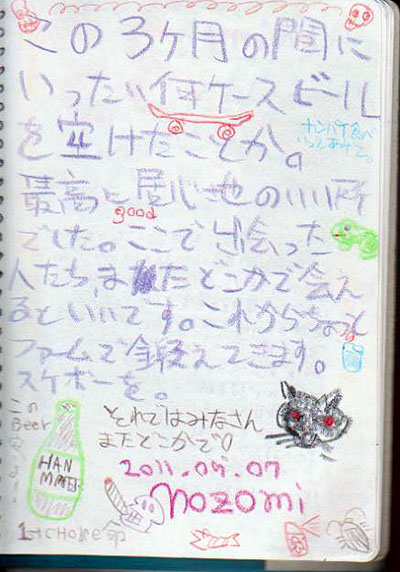 この3ヶ月の間に
いったい何ケースビール
を空けたことか。
最高に居心地のいい所
good
でした。ここで出会った
人たち、またどこかで会え
るといいです。これからちょっと
ファームで鍛えてきます。
スケボーを。
このBeer
それではみなさん
またどこかで♡
HAN
2011.09.07
nozomi